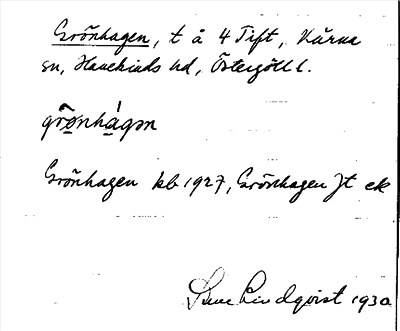 Grönhagen, t å 4 Tift, Kärna
sn, Hanekinds hd, Östergötl l.
grö̀nhá̱gən
Grönhagen kb 1927, Grönhagen Jt ek
Sune Lindqvist 1930